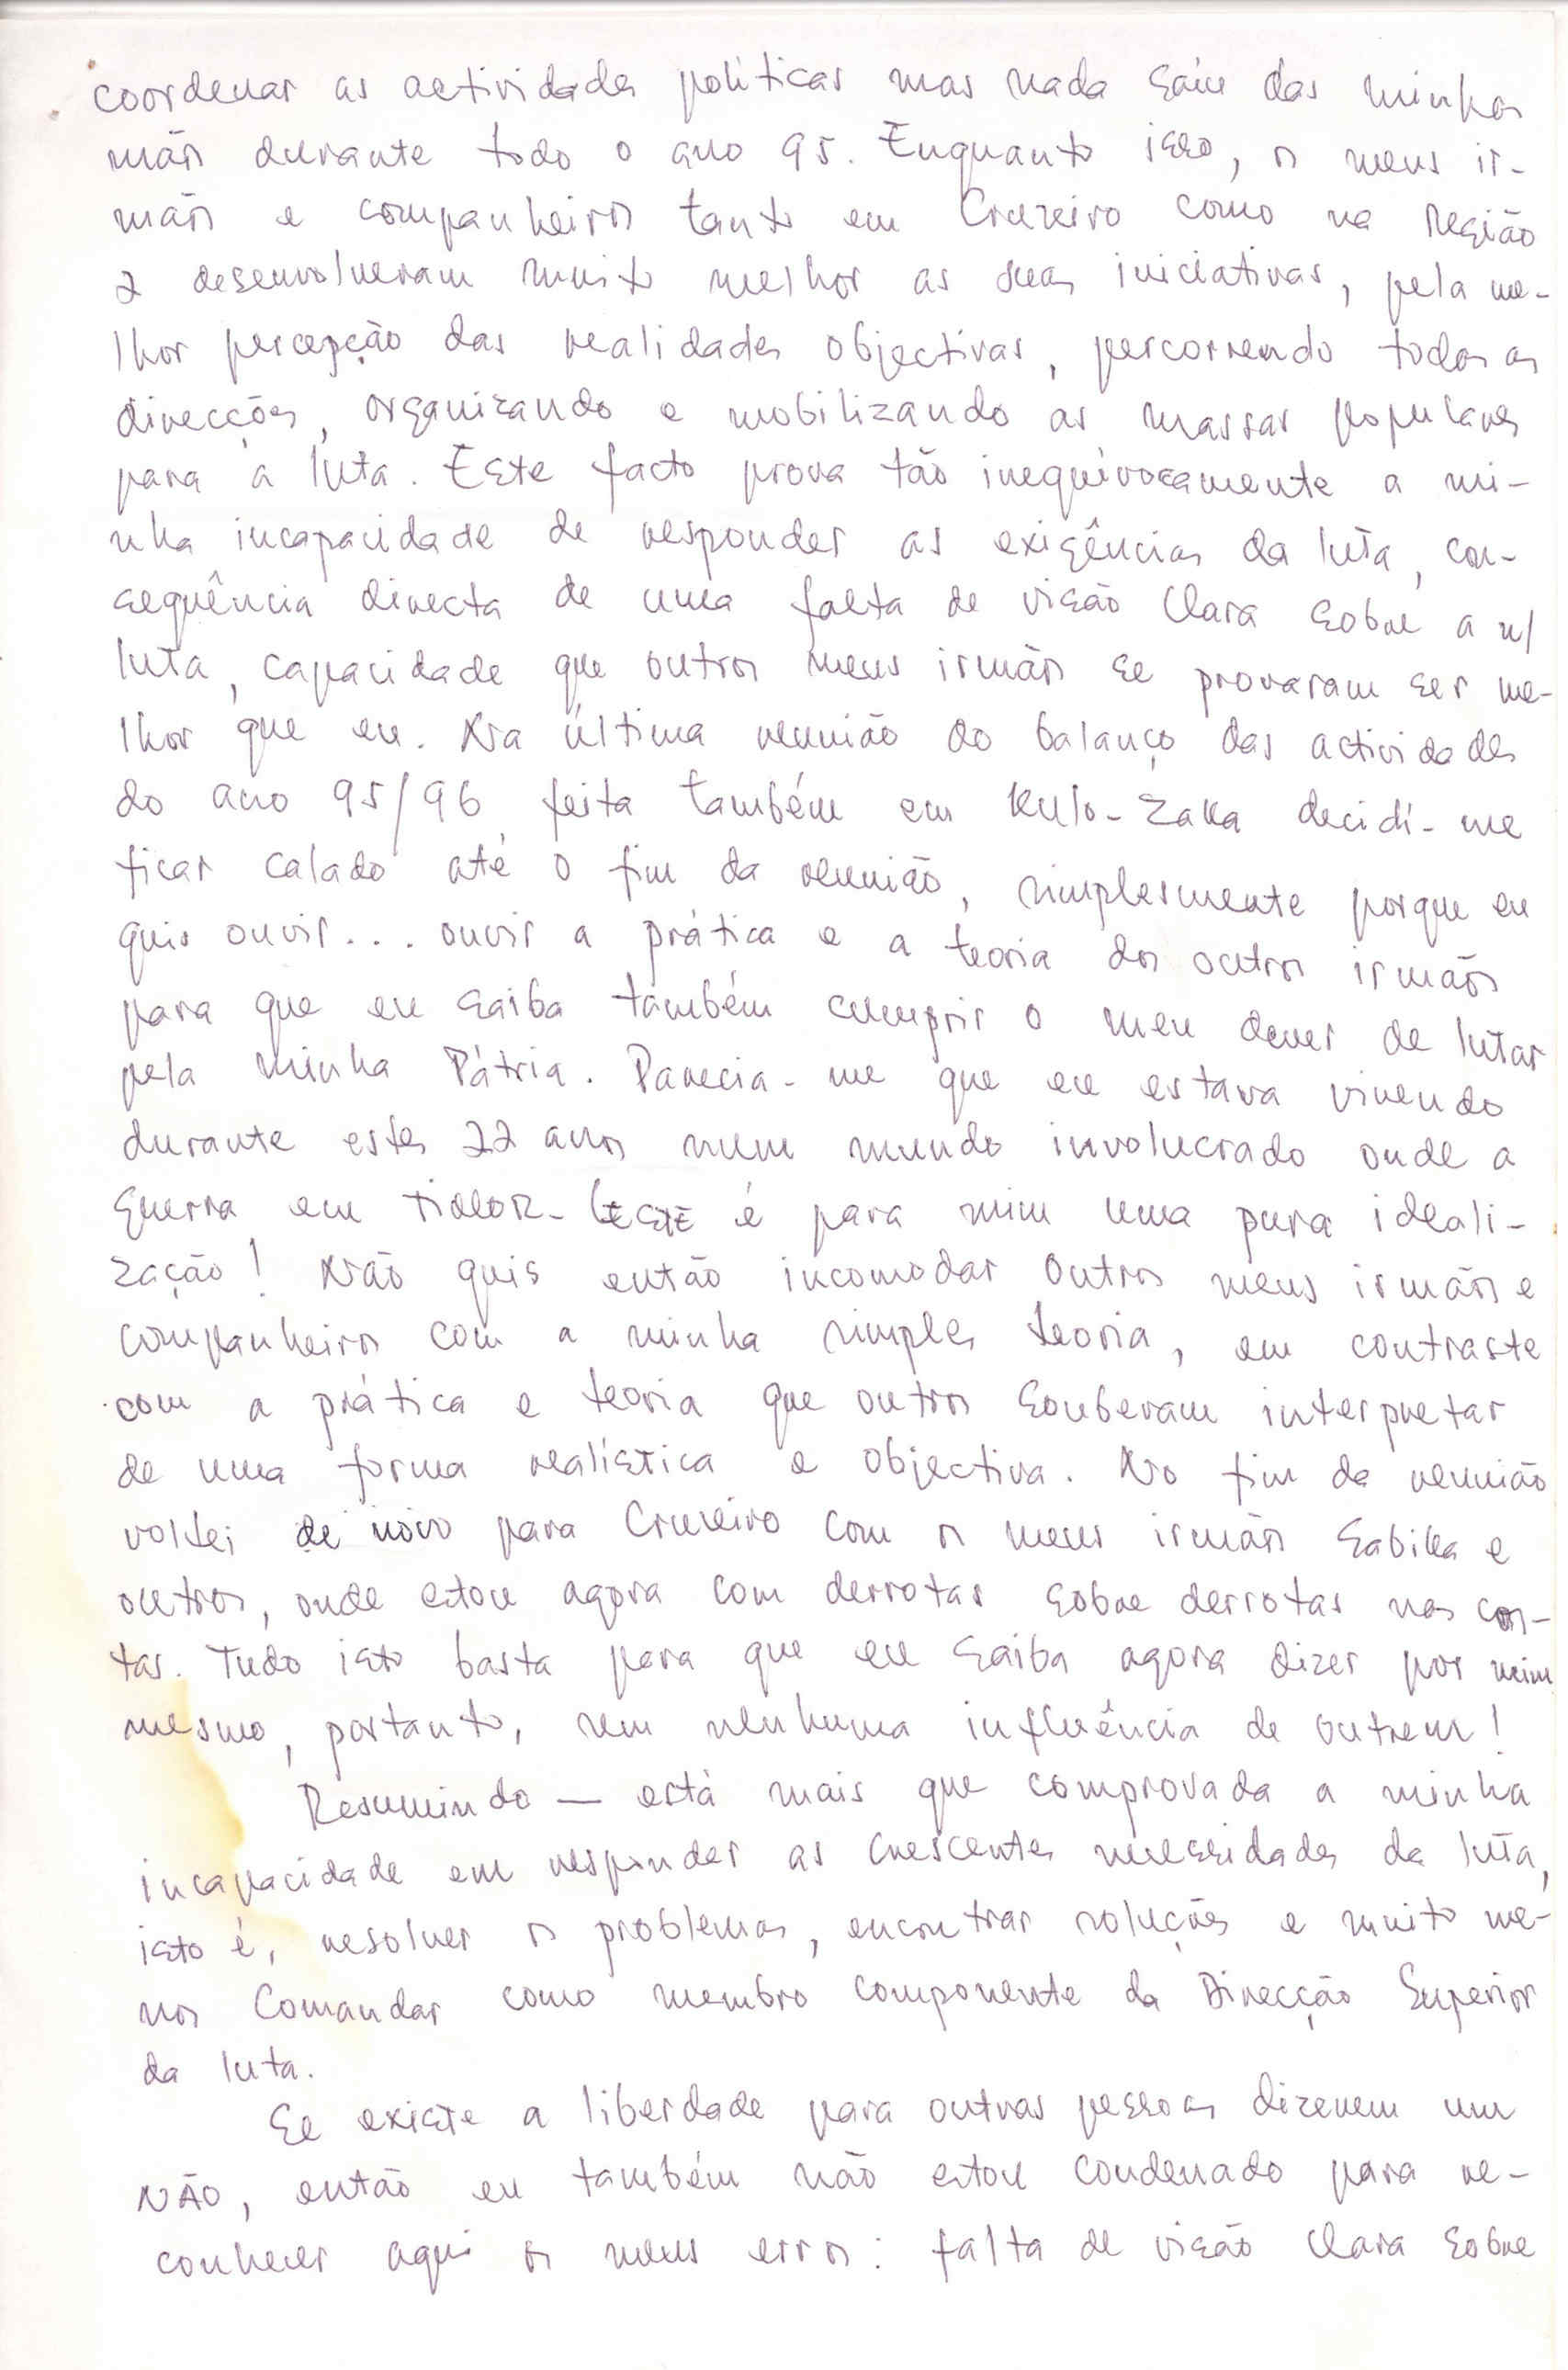 coordenar as actividades políticas mas nada saiu das minhas
mãos durante todo o ano 95. Enquanto isso, os meus ir-
mãos e companheiros tanto em Cruzeiro como na Região
2 desenvolveram muito melhor as suas iniciativas, pela me-
lhor percepção das realidades objectivas, percorrendo todas as
direcções, organizando e mobilizando as massas populares
para a luta. Este facto prova tão inequivocamente a mi-
nha incapacidade de responder as exigências da luta, con-
sequência directa de uma falta de visão clara sobre a n/
luta, capacidade que outros meus irmãos se provaram ser me-
lhor que eu. Na última reunião do balanço das actividades
do ano 95/96, feita também em Kulo-Zaka decidi-me
ficar calado até o fim da reunião, simplesmente porque eu
quis ouvir... ouvir a prática e a teoria dos outros irmãos
para que eu saiba também cumprir o meu dever de lutar
pela minha Pátria. Parecia-me que eu estava vivendo
durante estes 22 anos num mundo involucrado onde a
guerra em TIMOR-LESTE é para mim uma pura ideali-
zação! Não quis então incomodar outros meus irmãos e
companheiros com a minha simples teoria, em contraste
com a prática e teoria que outros souberam interpretar
de uma forma realística e objectiva. No fim da reunião
voltei de novo para Cruzeiro com os meus irmãos Sabika e
outros, onde estou agora com derrotas sobre derrotas nas cos-
tas. Tudo isto basta para que eu saiba agora dizer por mim
mesmo, portanto, sem nenhuma influência de outrem!
Resumindo — está mais que comprovada a minha
incapacidade em responder as crescentes necessidades da luta,
isto é, resolver os problemas, encontrar soluções e muito me-
nos Comandar como membro componente da Direcção Superior
da luta.
Se existe a liberdade para outras pessoas dizerem um
NÃO, então eu também não estou condenado para re-
conhecer aqui os meus erros: falta de visão clara sobre